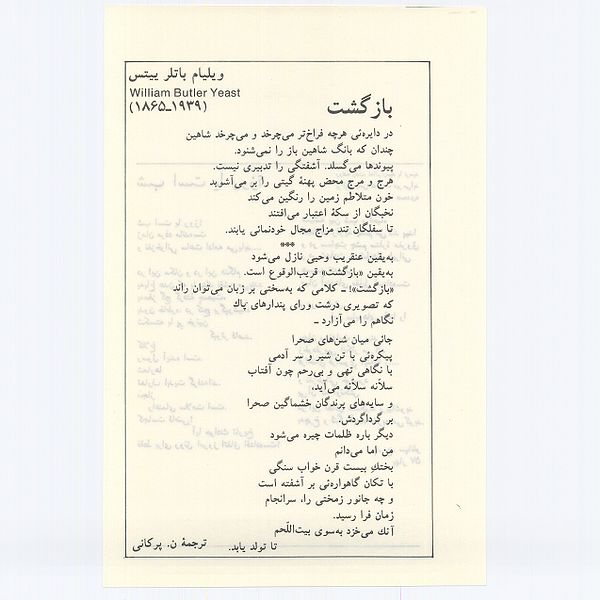 ویلیام باتلر ییتس
William Butler Yeast
(۱۸۶۵ـ۱۹۳۹)
بازگشت
در دایره‌ئی هرچه فراخ‌تر می‌چرخد و می‌چرخد شاهین
چندان که بانگ شاهین باز را نمی‌شنود.
پیوندها می‌گسلد. آشفتگی را تدبیری نیست.
هرج و مرج محض پهنهٔ گیتی را بر می‌آشوبد
خون متلاطم زمین را رنگین می‌کند
نخبگان از سکهٔ اعتبار می‌افتند
تا سفلگان تند مزاج مجال خودنمائی یابند.
***
به‌یقین عنقریب وحیی نازل می‌شود
به‌یقین «بازگشت» قریب‌الوقوع است.
«بازگشت»! ـ کلامی که به‌سختی بر زبان می‌توان راند
که تصویری درشت ورای پندارهای پاك
نگاهم را می‌آزارد ـ
جائی میان شن‌های صحرا
پیکره‌ئی با تن شیر و سر آدمی
با نگاهی تهی و بی‌رحم چون آفتاب
سلانه سلانه می‌آید،
و سایه‌های پرندگان خشماگین صحرا
بر گرداگردش.
دیگر باره ظلمات چیره می‌شود
من اما می‌دانم
بختك بیست قرن خواب سنگی
با تکان گاهواره‌ئی بر آشفته است
و چه جانور زمختی را، سرانجام
زمان فرا رسید.
آنك می‌خزد به‌سوی بیت‌اللّحم
تا تولد یابد.
ترجمهٔ ن. پرکانی